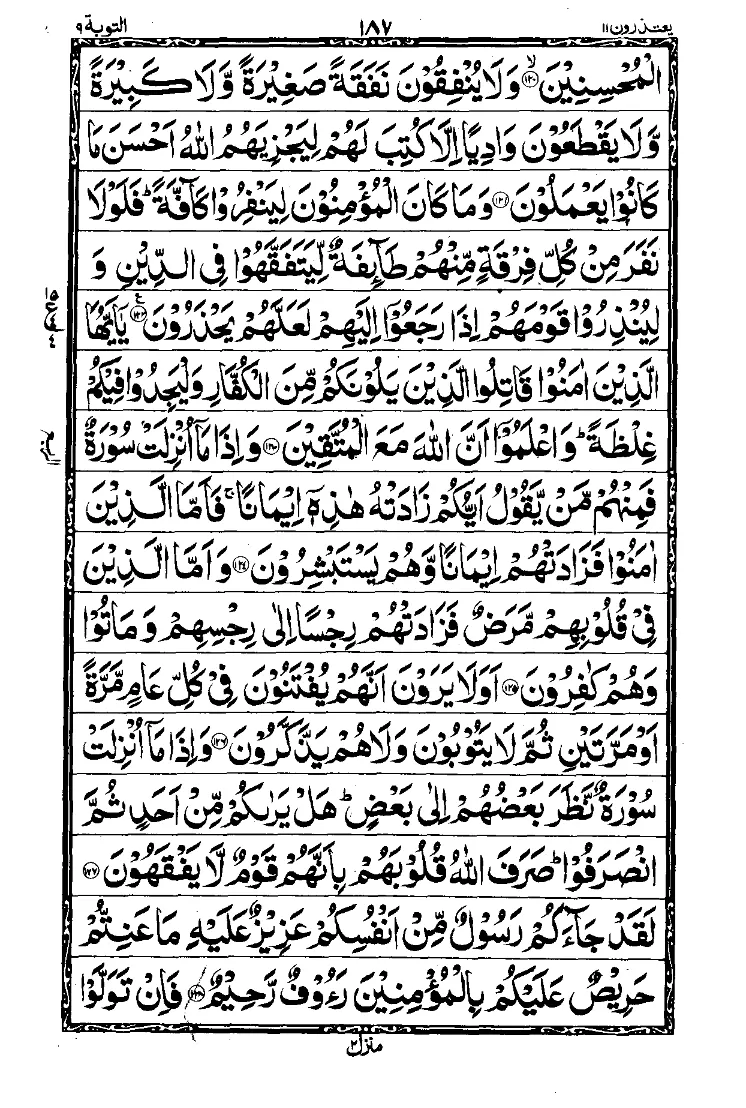 یعتذرون ۱۱ ۱۸۷ التوبة ۹
الْمُحْسِنِيْنَ ۙ﴿۱۲۰﴾ وَلَا يُنْفِقُوْنَ نَفَقَةً صَغِيْرَةً وَّلَا كَبِيْرَةً
وَّلَا يَقْطَعُوْنَ وَادِيًا اِلَّا كُتِبَ لَهُمْ لِيَجْزِيَهُمُ اللّٰهُ اَحْسَنَ مَا
كَانُوْا يَعْمَلُوْنَ ﴿۱۲۱﴾ وَمَا كَانَ الْمُؤْمِنُوْنَ لِيَنْفِرُوْا كَآفَّةً ؕ فَلَوْلَا
نَفَرَ مِنْ كُلِّ فِرْقَةٍ مِّنْهُمْ طَآئِفَةٌ لِّيَتَفَقَّهُوْا فِی الدِّيْنِ وَ
لِيُنْذِرُوْا قَوْمَهُمْ اِذَا رَجَعُوْٓا اِلَيْهِمْ لَعَلَّهُمْ يَحْذَرُوْنَ ﴿۱۲۲﴾ ع يٰٓاَيُّهَا
الَّذِيْنَ اٰمَنُوْا قَاتِلُوا الَّذِيْنَ يَلُوْنَكُمْ مِّنَ الْكُفَّارِ وَلْيَجِدُوْا فِيْكُمْ
غِلْظَةً ؕ وَاعْلَمُوْٓا اَنَّ اللّٰهَ مَعَ الْمُتَّقِيْنَ ﴿۱۲۳﴾ وَاِذَا مَآ اُنْزِلَتْ سُوْرَةٌ
فَمِنْهُمْ مَّنْ يَّقُوْلُ اَيُّكُمْ زَادَتْهُ هٰذِهٖٓ اِيْمَانًا ۚ فَاَمَّا الَّذِيْنَ
اٰمَنُوْا فَزَادَتْهُمْ اِيْمَانًا وَّهُمْ يَسْتَبْشِرُوْنَ ﴿۱۲۴﴾ وَاَمَّا الَّذِيْنَ
فِیْ قُلُوْبِهِمْ مَّرَضٌ فَزَادَتْهُمْ رِجْسًا اِلٰی رِجْسِهِمْ وَمَاتُوْا
وَهُمْ كٰفِرُوْنَ ﴿۱۲۵﴾ اَوَلَا يَرَوْنَ اَنَّهُمْ يُفْتَنُوْنَ فِیْ كُلِّ عَامٍ مَّرَّةً
اَوْ مَرَّتَيْنِ ثُمَّ لَا يَتُوْبُوْنَ وَلَا هُمْ يَذَّكَّرُوْنَ ﴿۱۲۶﴾ وَاِذَا مَآ اُنْزِلَتْ
سُوْرَةٌ نَّظَرَ بَعْضُهُمْ اِلٰی بَعْضٍ ؕ هَلْ يَرٰىكُمْ مِّنْ اَحَدٍ ثُمَّ
انْصَرَفُوْا ؕ صَرَفَ اللّٰهُ قُلُوْبَهُمْ بِاَنَّهُمْ قَوْمٌ لَّا يَفْقَهُوْنَ ﴿۱۲۷﴾
لَقَدْ جَآءَكُمْ رَسُوْلٌ مِّنْ اَنْفُسِكُمْ عَزِيْزٌ عَلَيْهِ مَا عَنِتُّمْ
حَرِيْصٌ عَلَيْكُمْ بِالْمُؤْمِنِيْنَ رَءُوْفٌ رَّحِيْمٌ ﴿۱۲۸﴾ فَاِنْ تَوَلَّوْا
منزل ۲